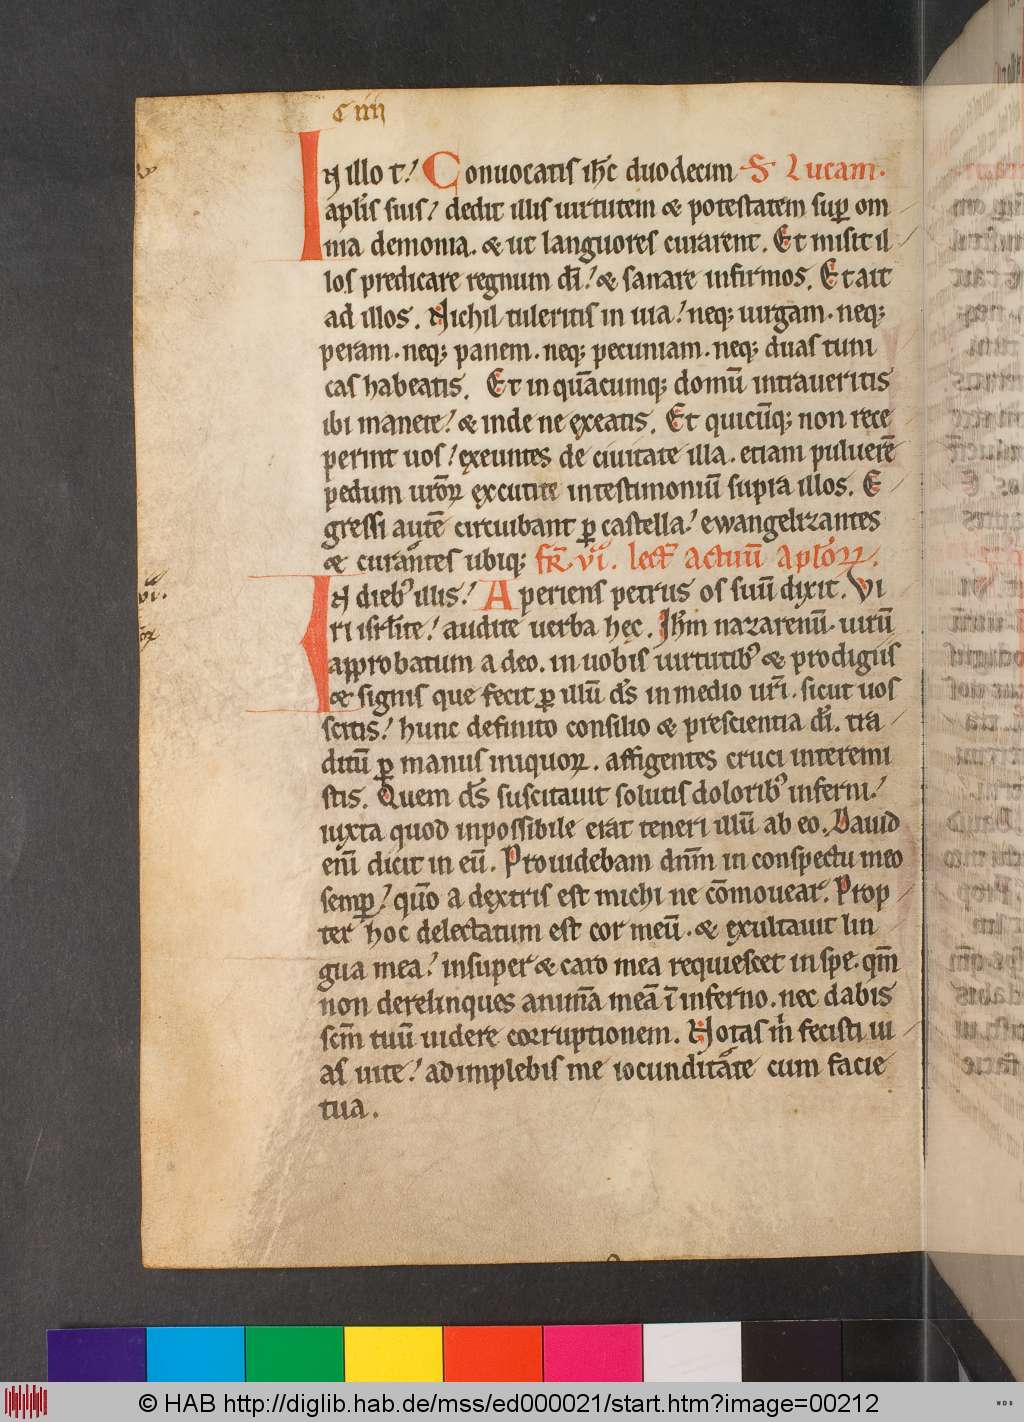 c iiii
In illo t̄. Conuocatis ih̄c duodecim S. Lucam.
aplīs suis. dedit illis uirtutem & potestatem sup̱ om
nia demonia. & ut languores curarent. Et misit il
los predicare regnum dī. & sanare infirmos. Et ait
ad illos. Nichil tuleritis in uia. neq; uirgam. neq;
peram. neq; panem. neq; pecuniam. neq; duas tuni
cas habeatis. Et in quācumq; domū intraueritis
ibi manete. & inde ne ęxeatis. Et quicūq; non rece
perint uos. ęxeuntes de ciuitate illa. etiam puluerē
pedum urōꝝ ęxcutite in testimoniū supra illos. E
gressi autē circuibant ꝑ castella. ewangelizantes
& curantes ubiq; fr̄ vi. lect̄ actuū aplōꝝ.
In dieb; illis. Aperiens petrus os suū dixit. Vi
ri isrl̄ite. audite uerba hęc. Ih̄m nazarenū. uirū
approbatum a deo. in uobis uirtutib; & prodigiis
& signis que fecit ꝑ illū d̄s in medio ur̄i. sicut uos
scitis. hunc definito consilio & prescientia dī. tra
ditū ꝑ manus iniquoꝝ. affigentes cruci interemi
stis. Quem d̄s suscitauit solutis dolorib; inferni.
iuxta quod inpossibile erat teneri illū ab eo. Dauid
enī dicit in eū. Prouidebam dn̄m in conspectu meo
semꝑ. quō a dęxtris est michi ne cōmouear. Prop
ter hoc delectatum est cor meū. & ęxultauit lin
gua mea. insuper & caro mea requiescet in spe. qm̄
non derelinques animā meā ī inferno. nec dabis
scm̄ tuū uidere corruptionem. Notas m̄ fecisti ui
as uite. adimplebis me iocunditate cum facie
tua.
vi.
© HAB http://diglib.hab.de/mss/ed000021/start.htm?image=00212